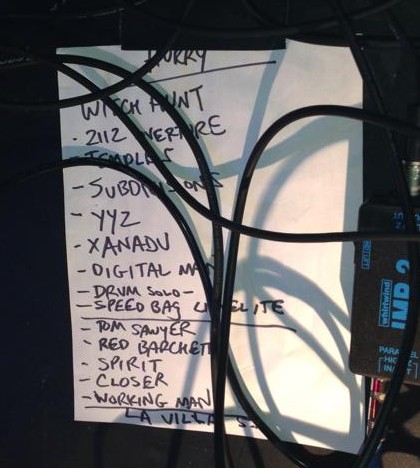 WITCH HUNT
- 2112 OVERTURE
- TEMPLES
- SUBDIVISIONS
- YYZ
- XANADU
- DIGITAL MAN
- DRUM SOLO -
- SPEED BAG LIMELITE
- TOM SAWYER
- RED BARCHETT
- SPIRIT
- CLOSER
- WORKING MAN
LA VILLA
LIFT
whirlwind
IMP 2